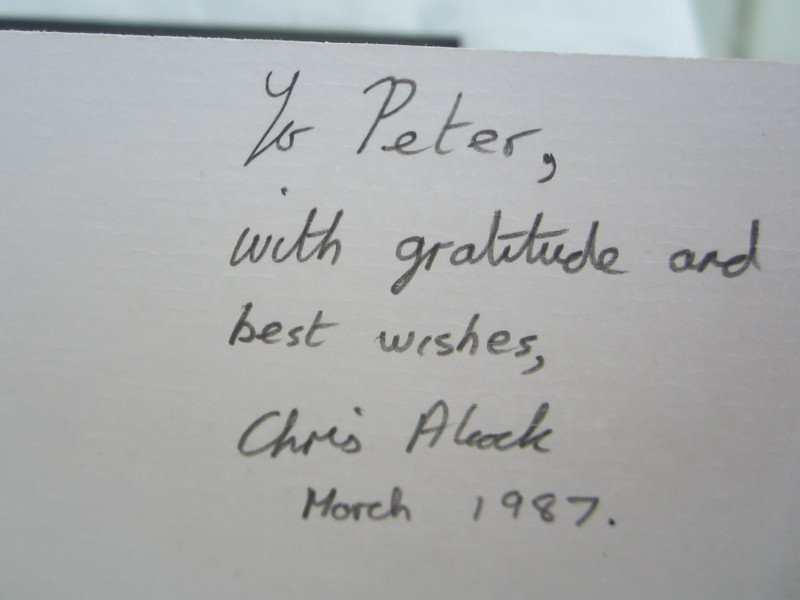 To Peter,
with gratitude and
best wishes,
Chris Alcock
March 1987.